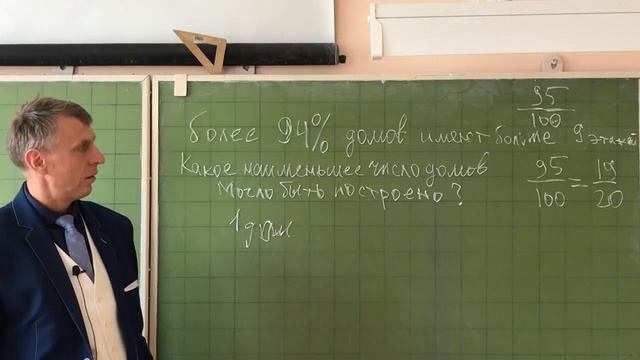 95
100
Более 94% домов имеют больше 9 этажей
Какое наименьшее число домов
Могло быть построено?
95/100 = 19/20
1 дом